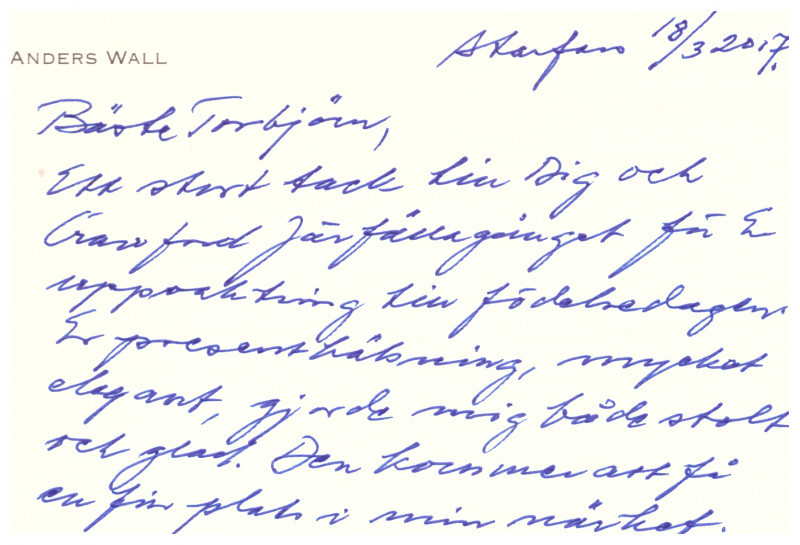 ANDERS WALL
Starfors 18/3 2017.
Bäste Torbjörn,
Ett stort tack till Dig och
Crawford Järfällagänget för Er
uppvaktning till födelsedagen.
Er present hälsning, mycket
elegant, gjorde mig både stolt
och glad. Den kommer att få
en fin plats i min närhet.